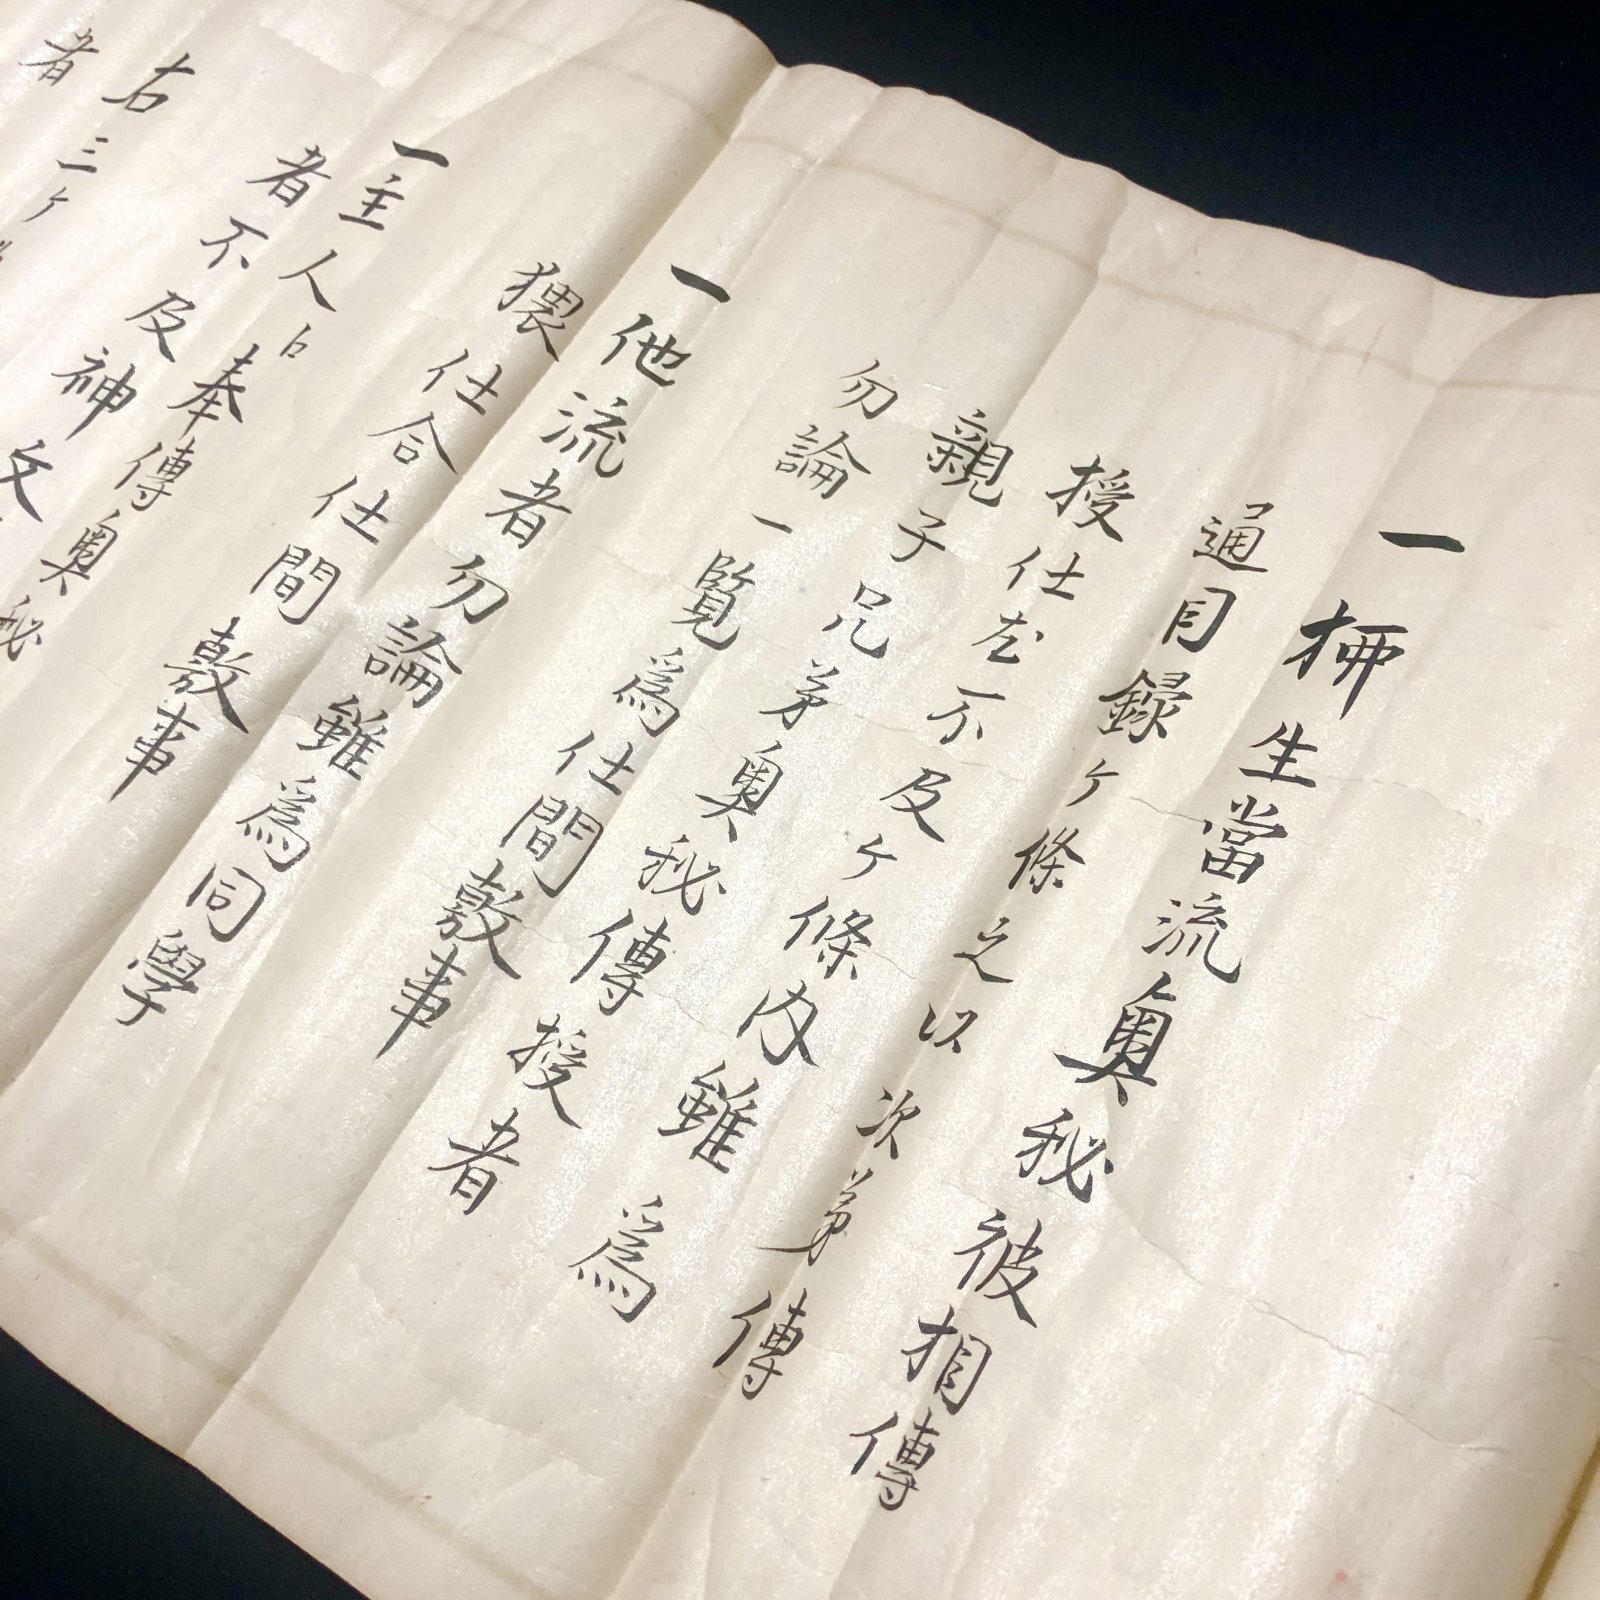 一栁生當流奥秘被相傳
通目録ヶ條之以次第傳
授仕尤不及ヶ條内雖爲
親子兄弟奥秘傳授者
勿論一覧爲仕間敷事
一他流者勿論雖爲同學
猥仕合仕間敷事
一主人ゟ奉傳奥秘
者不及神文
右三ヶ
者